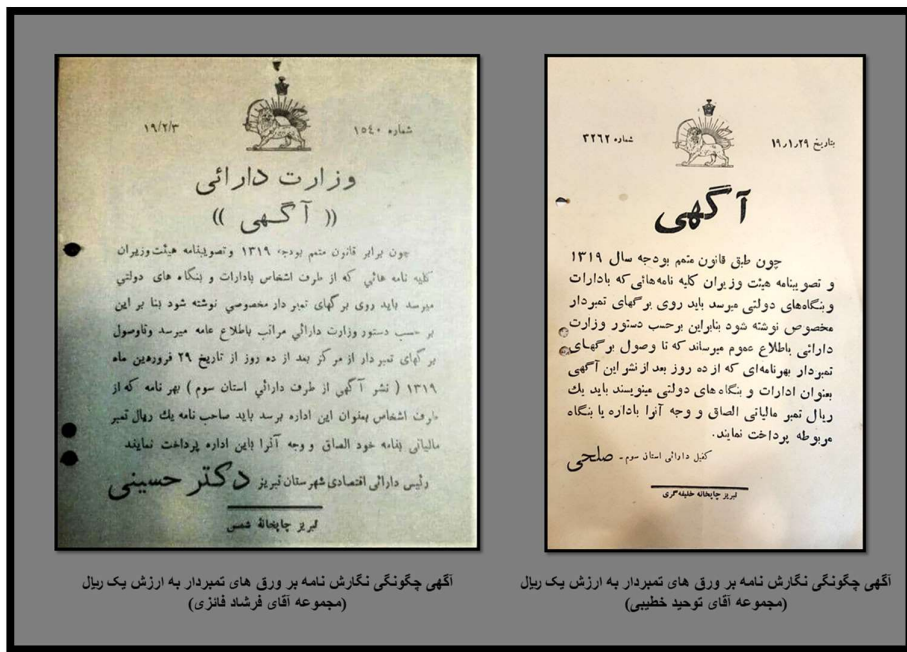 بتاریخ ۱۹٫۱٫۲۹
شماره ۳۲۶۲
آگهی
چون طبق قانون متمم بودجه سال ۱۳۱۹
و تصویبنامه هیئت وزیران کلیه نامه‌هائی که بادارات
و بنگاه‌های دولتی میرسد باید روی برگهای تمبردار
مخصوص نوشته شود بنابراین برحسب دستور وزارت
دارائی باطلاع عموم میرساند که تا وصول برگهای
تمبردار بهرنامه‌ای که از ده روز بعد از نشر این آگهی
بعنوان ادارات و بنگاه های دولتی مینویسند باید یك
ریال تمبر مالیاتی الصاق و وجه آنرا باداره یا بنگاه
مربوطه پرداخت نمایند.
کفیل دارائی استان سوم - صلحی
تبریز چاپخانه خلیفه‌گری
آگهی چگونگی نگارش نامه بر ورق های تمبردار به ارزش یک ریال
(مجموعه آقای توحید خطیبی)
شماره ۱۵۴۰
۱۹/۲/۳
وزارت دارائی
(( آگهی ))
چون برابر قانون متمم بودجه ۱۳۱۹ و تصویبنامه هیئت وزیران
کلیه نامه هائی که از طرف اشخاص بادارات و بنگاه های دولتی
میرسد باید روی برگهای تمبر دار مخصوصی نوشته شود بنا بر این
بر حسب دستور وزارت دارائی مراتب باطلاع عامه میرسد و تاوصول
برگهای تمبردار از مرکز بعد از ده روز از تاریخ ۲۹ فروردین ماه
۱۳۱۹ ( نشر آگهی از طرف دارائی استان سوم ) بهر نامه که از
طرف اشخاص بعنوان این اداره برسد باید صاحب نامه یك ریال تمبر
مالیاتی بنامه خود الصاق و وجه آنرا باین اداره پرداخت نمایند
رئیس دارائی اقتصادی شهرستان تبریز دکتر حسینی
تبریز چاپخانهٔ شمسی
آگهی چگونگی نگارش نامه بر ورق های تمبردار به ارزش یک ریال
(مجموعه آقای فرشاد فائزی)